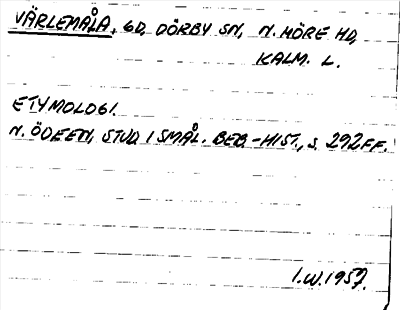 VÄRLEMÅLA, GD, DÖRBY SN, N. MÖRE HD,
KALM. L.
ETYMOLOGI.
N. ÖDEEN, STUD. I SMÅL. BEB.-HIST., S. 292FF.
I.W. 1957.